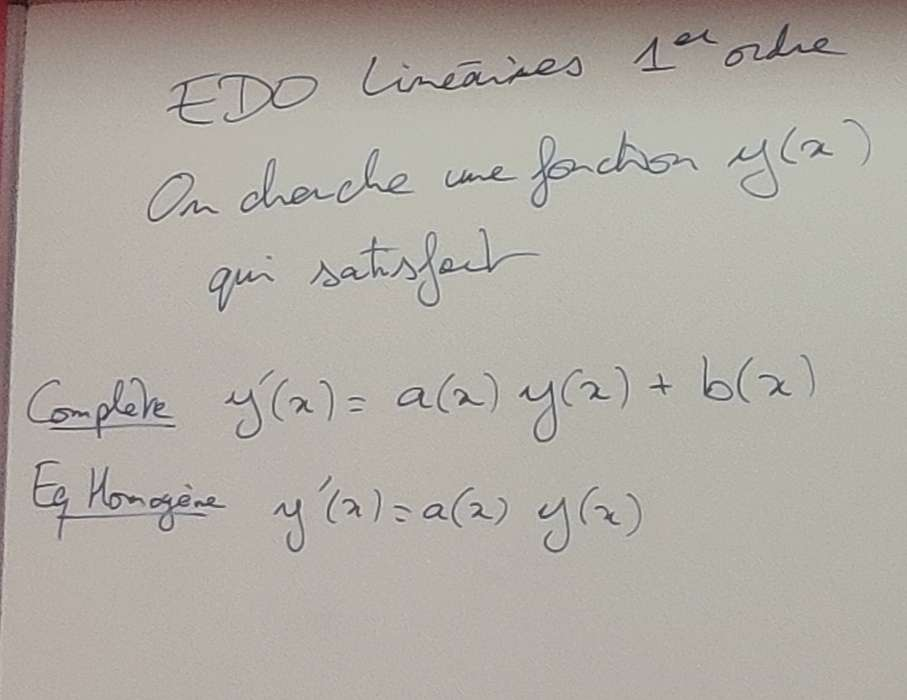 EDO Linéaires 1er ordre
On cherche une fonction y(x)
qui satisfait
Complète y'(x) = a(x) y(x) + b(x)
Eq Homogène y'(x) = a(x) y(x)